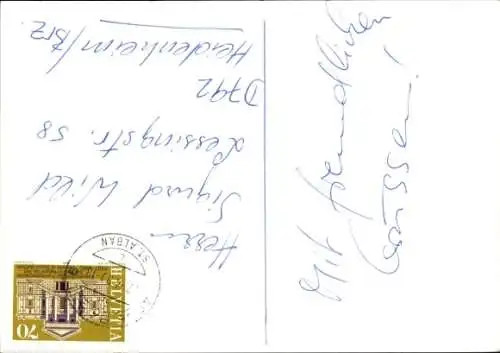 Mit freundlichen
Grüssen!
Herrn
Sigurd Wild
Lessingstr. 58
D792
Heidenheim/Brz.
ST. ALBAN
HELVETIA
70